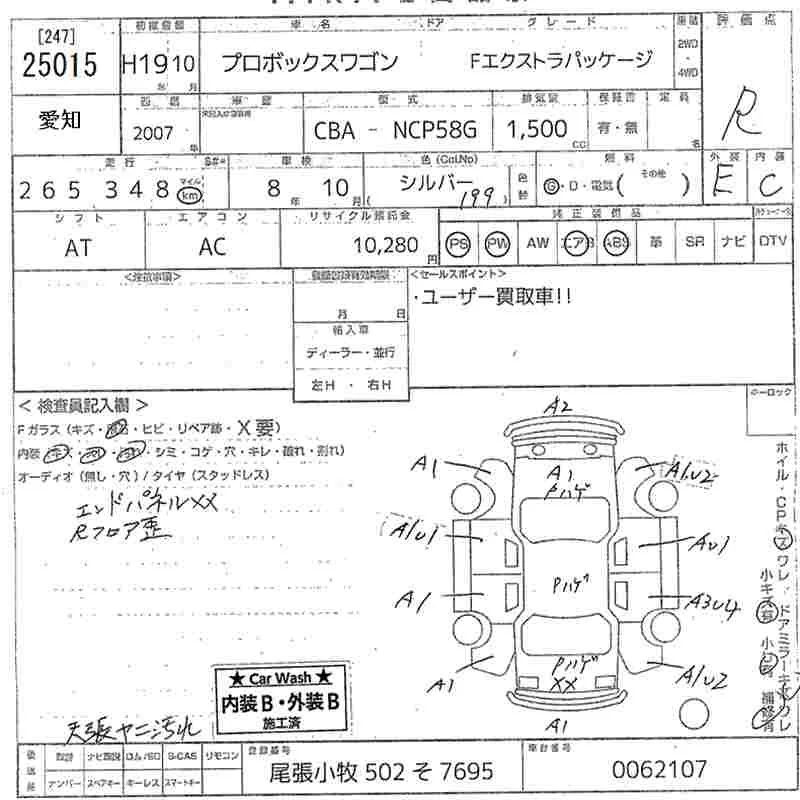 [247]
25015
初度登録
車名
ドア
グレード
H19 10
年 月
プロボックスワゴン
Fエクストラパッケージ
2WD
・
4WD
評価点
R
愛知
2007
年
車歴
型式
CBA - NCP58G
排気量
1,500
CC
保証書
有・無
定員
名
走行
265348
マイル
km
車検
8年 10月
色(Col.No)
シルバー
( 199 )
色替
燃料
G・D・電気( その他 )
外装
E
内装
C
シフト
AT
エアコン
AC
リサイクル預託金
10,280
円
純正装備品
PS
PW
AW
エアB
ABS
革
SR
ナビ
DTV
<注意事項>
月 日
輸入車
ディーラー・並行
左H ・ 右H
<セールスポイント>
・ユーザー買取車!!
キーロック
< 検査員記入欄 >
Fガラス(キズ・飛石・ヒビ・リペア跡・X要)
シミ・コゲ・穴・キレ・破れ・割れ)
オーディオ(無し・穴)/タイヤ(スタッドレス)
エンドパネルXX
Rフロア歪
天張ヤニ汚れ
A2
A1
A1
Pハゲ
A1U2
A1U1
AU1
Pハゲ
A1
A3U4
Pハゲ
XX
A1
A1U2
A1
ホイル・CPキズワレ・ドアミラーキズワレ
小キズ有 小凹有 補修有
★ Car Wash ★
内装B・外装B
施工済
後送品
取説
ナビ取説
ロム/SD
B-CAS
リモコン
ナンバー
スペアキー
キーレス
スマートキー
登録番号
尾張小牧 502 そ 7695
車台番号
0062107